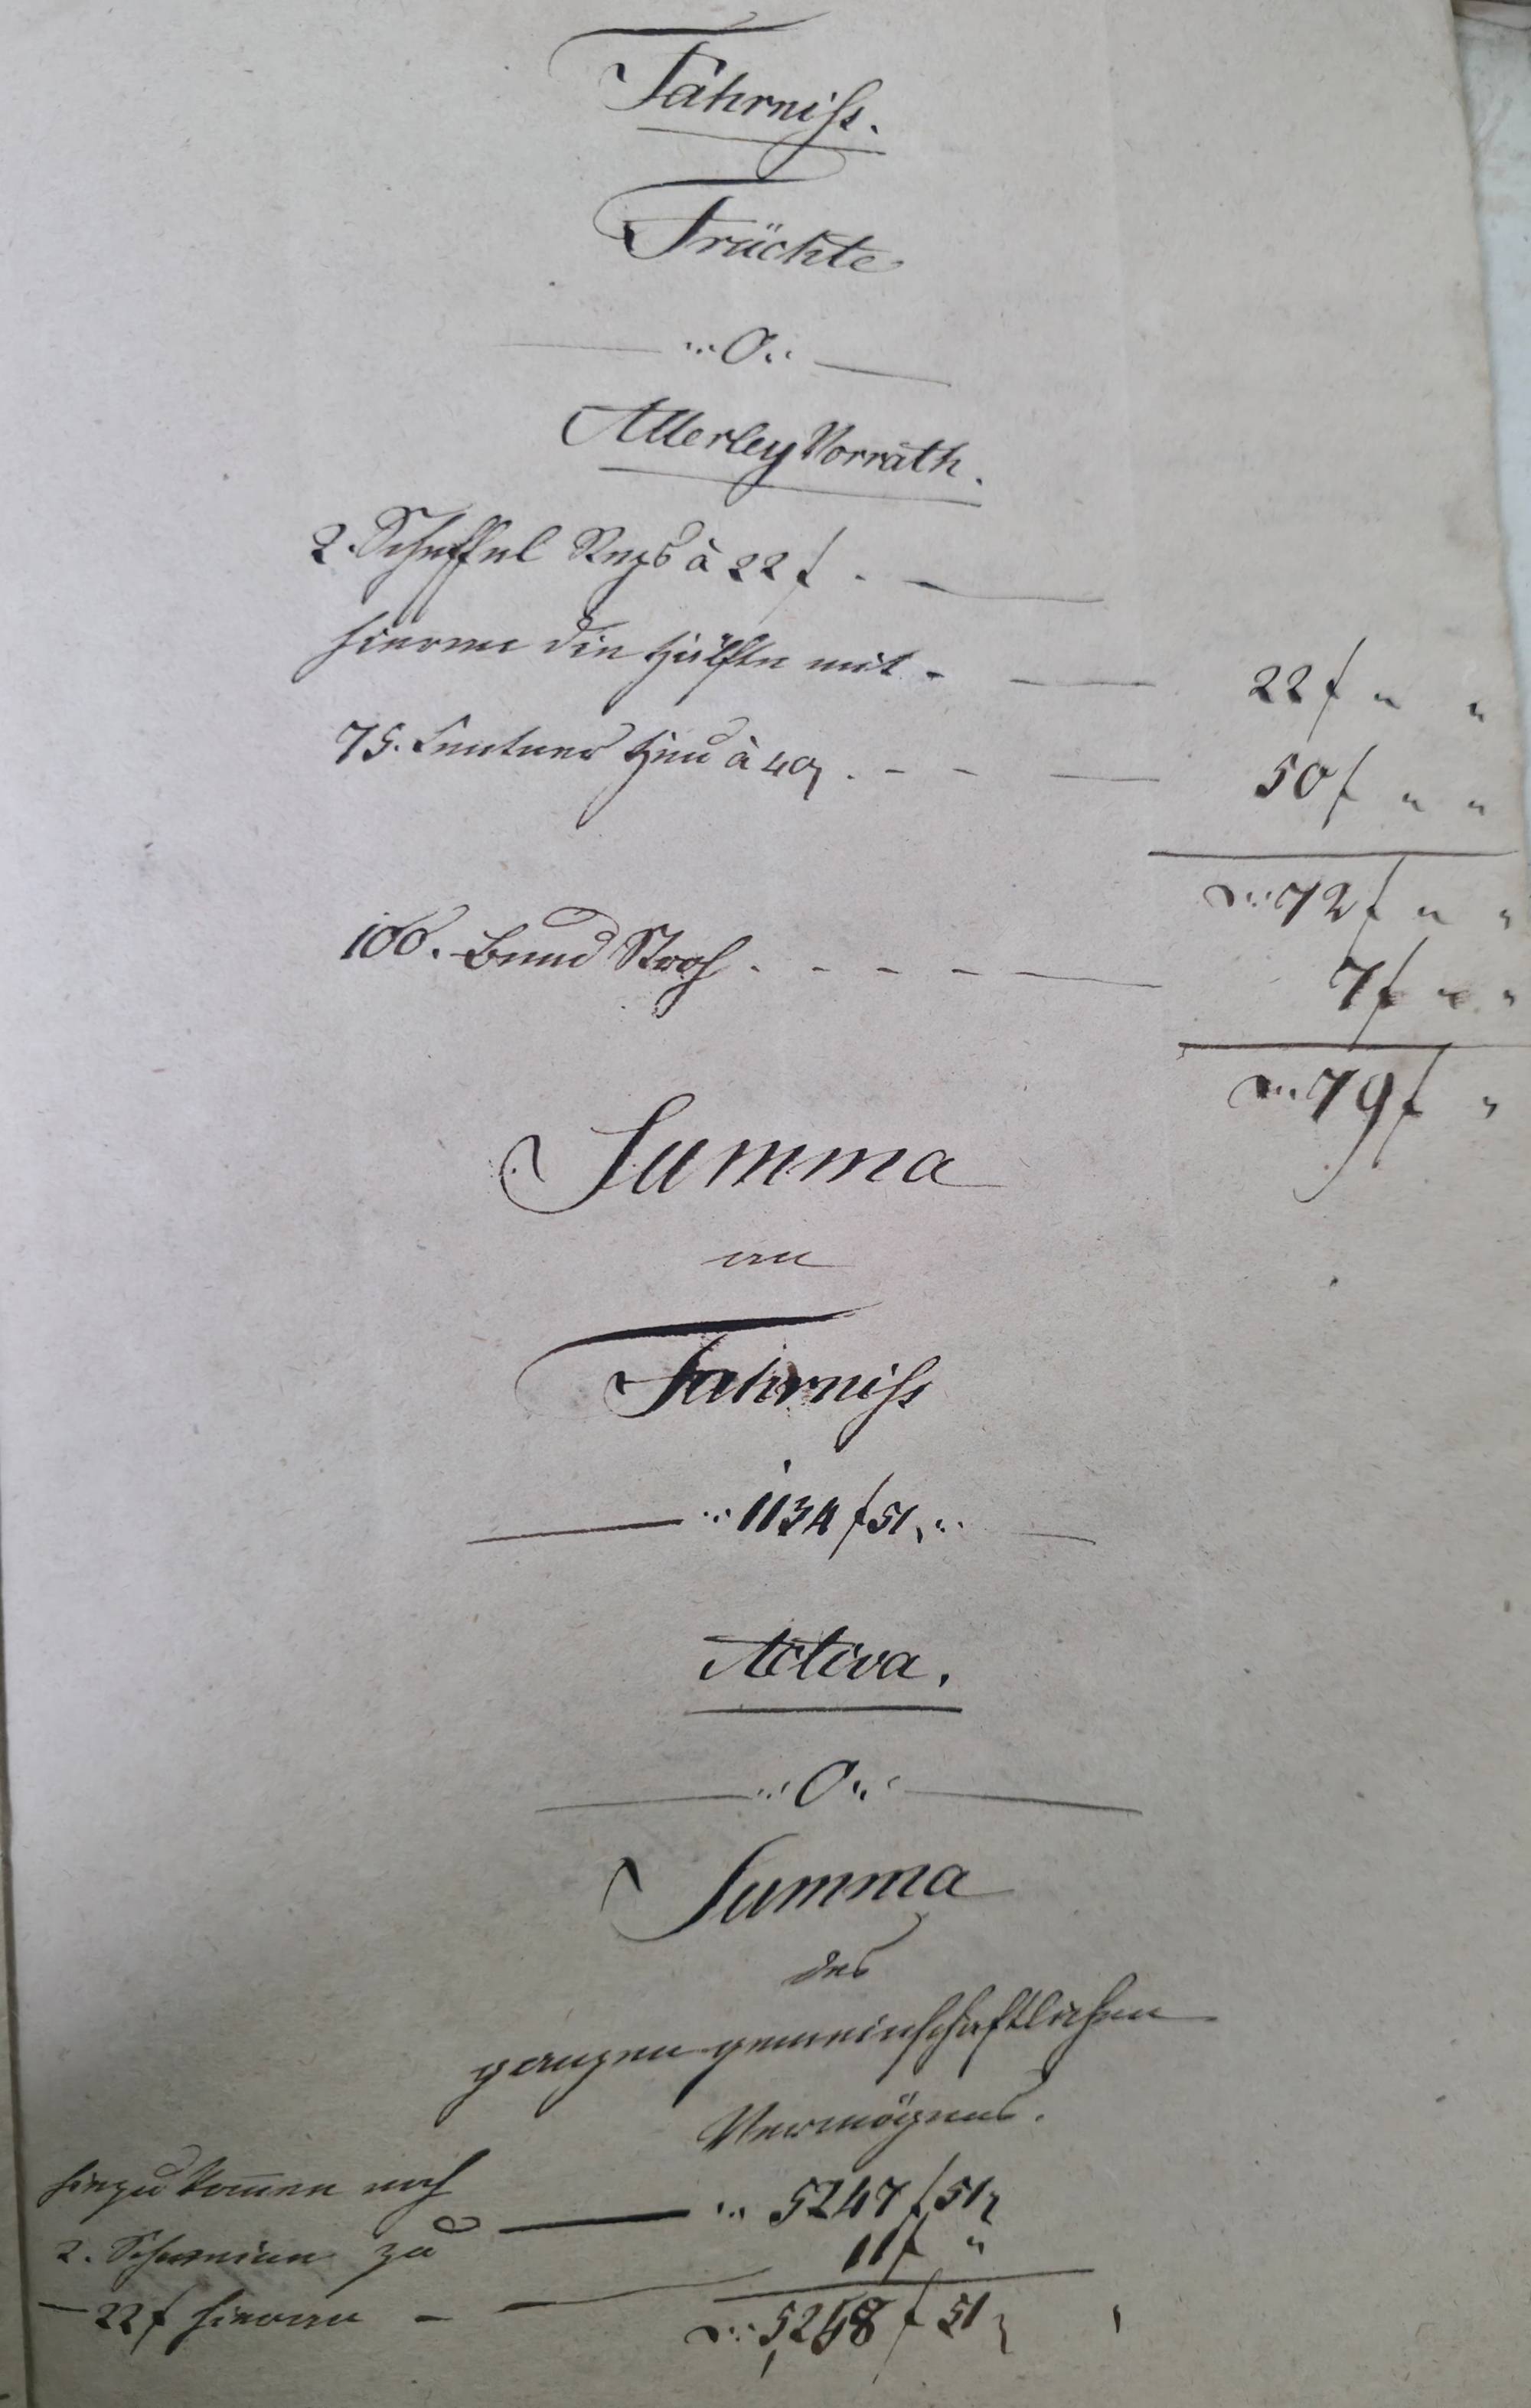 Fährniſs.
Früchte
—..0..—
Allerley Vorrath.
2. Scheffel Reps à 22 f. —
hievon die Hälfte mit - — 22 f " "
75. Centner Heu à 40 x. - - — 50 f " "
72 f " "
100. Bund Stroh. - - - — 7 f " "
79 f "
Summa
an
Fahrniſs
— 1134 f 51 x. —
Activa.
—..0..—
Summa
des
ganzen gemeinschaftlichen
Vermögens.
hiezu kommen noch
— 5247 f 51 x
2. Schweine zu
11 f "
— 22 f hievon - —
5258 f 51 x